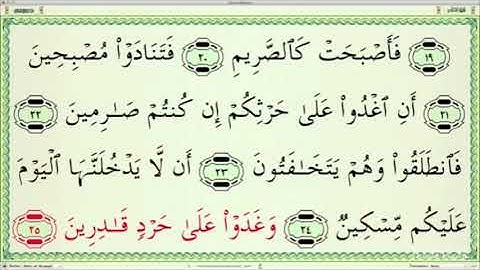 ﴿١٩﴾ فَأَصْبَحَتْ كَٱلصَّرِيمِ ﴿٢٠﴾ فَتَنَادَوْا۟ مُصْبِحِينَ
﴿٢١﴾ أَنِ ٱغْدُوا۟ عَلَىٰ حَرْثِكُمْ إِن كُنتُمْ صَـٰرِمِينَ ﴿٢٢﴾
فَٱنطَلَقُوا۟ وَهُمْ يَتَخَـٰفَتُونَ ﴿٢٣﴾ أَن لَّا يَدْخُلَنَّهَا ٱلْيَوْمَ
عَلَيْكُم مِّسْكِينٌ ﴿٢٤﴾ وَغَدَوْا۟ عَلَىٰ حَرْدٍ قَـٰدِرِينَ ﴿٢٥﴾